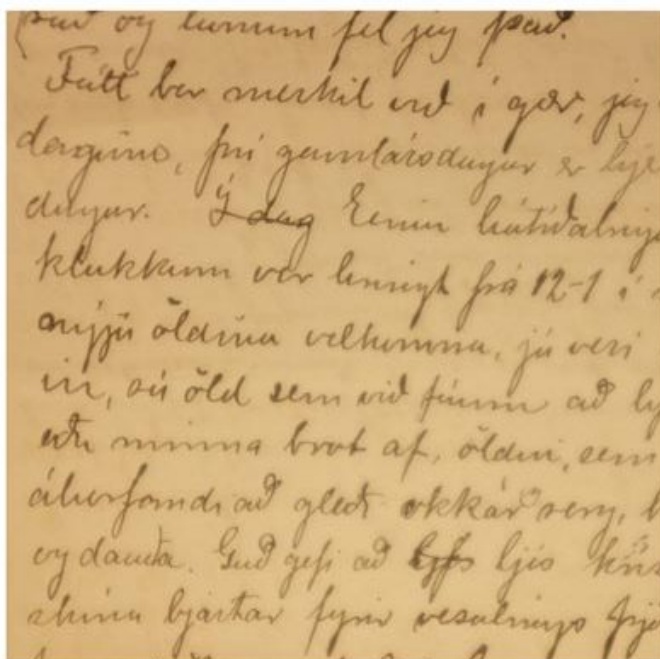 það og honum fel jeg það.
Fátt bar merkil við í gær, jeg
daginn, því gamlársdagur er hje
dagur. Í dag Einin hátíðalnig
klukkum var hringt frá 12-1 í
nýju öldina velkomna, jú veri
in, sú öld sem við fáum að ly
eða minna brot af, öldin, sem
áhorfandi að gleði okkar sorg, l
og dauða. Guð gefi að lyfs ljós
skína bjartar fyrir vesalings þjó